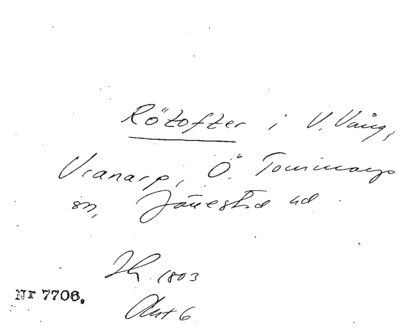 Rötofter i V. Vång,
Vranarp, Ö. Tommarps
sn, Järrestad hd
1803
Akt 6
Nr 7706.